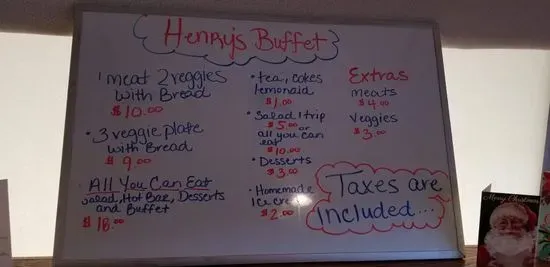 Henry's Buffet
1 meat 2 veggies
with Bread
$10.00
• 3 veggie plate
with Bread
$9.00
All You Can Eat
Salad, Hot Bar, Desserts
and Buffet
$18.00
• tea, cokes
lemonaid
$1.00
• Salad 1 trip
$5.00 or
all you can
eat
$10.00
• Desserts
$3.00
• Homemade
Ice cream
$2.00
Extras
meats
$4.00
Veggies
$3.00
Taxes are
included...
Merry Christmas